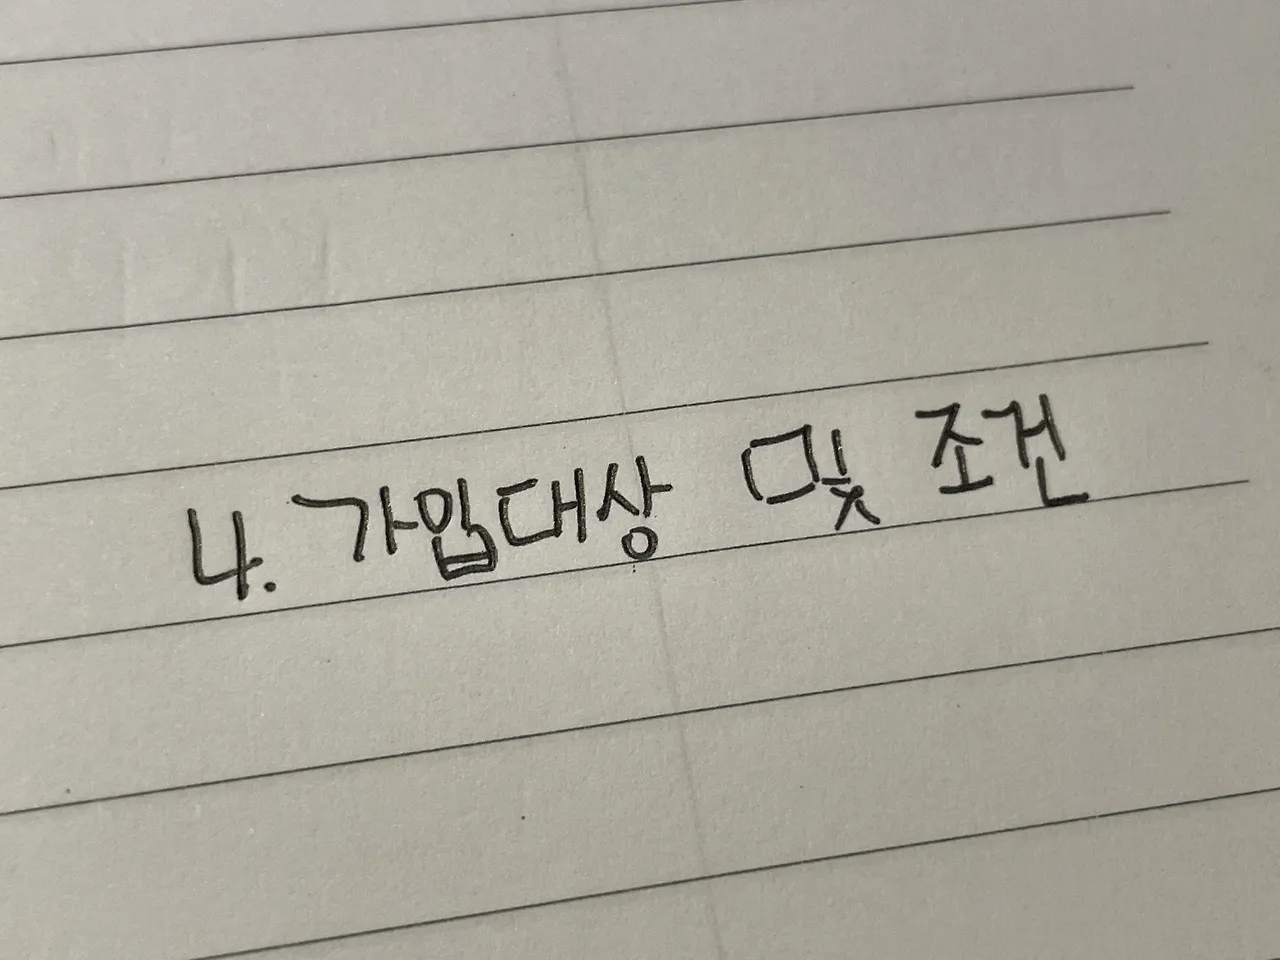 4. 가입대상 및 조건